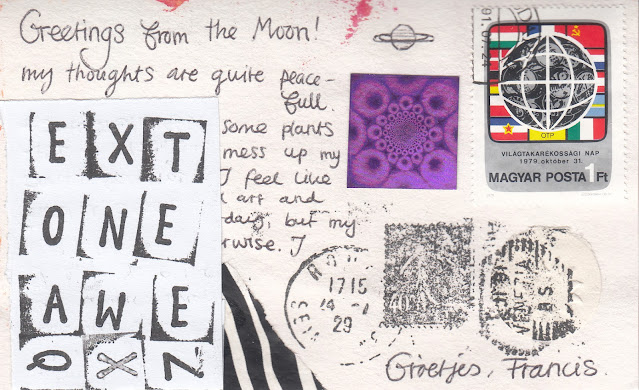 Greetings from the Moon!
my thoughts are quite peace-
full.
some plants
mess up my
I feel like
art and
days, but my
rwise. I
EXT
ONE
AWE
Q X Z
OTP
VILÁGTAKARÉKOSSÁGI NAP
1979. október 31.
MAGYAR POSTA 1 Ft
1715
29
VENEZIA
Groetjes, Francis.